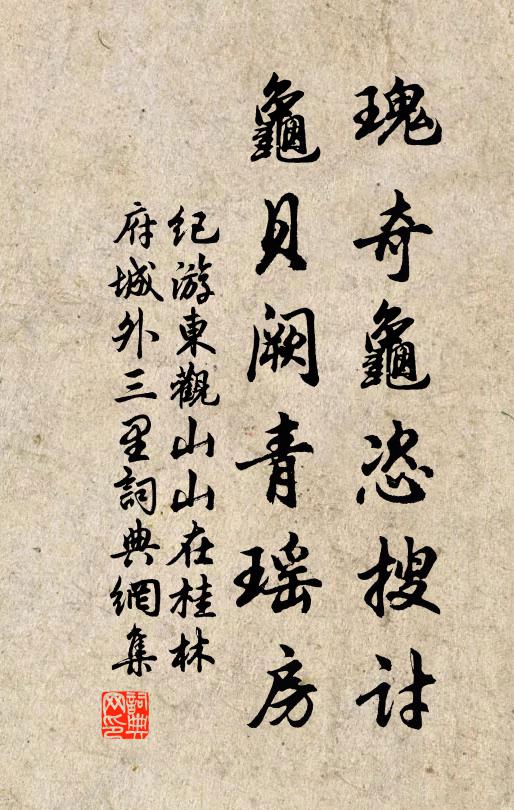 瑰奇龜恣搜討
龜貝闕青瑶房
紀游東觀山山在桂林
府城外三里詞典網集
詞典網印